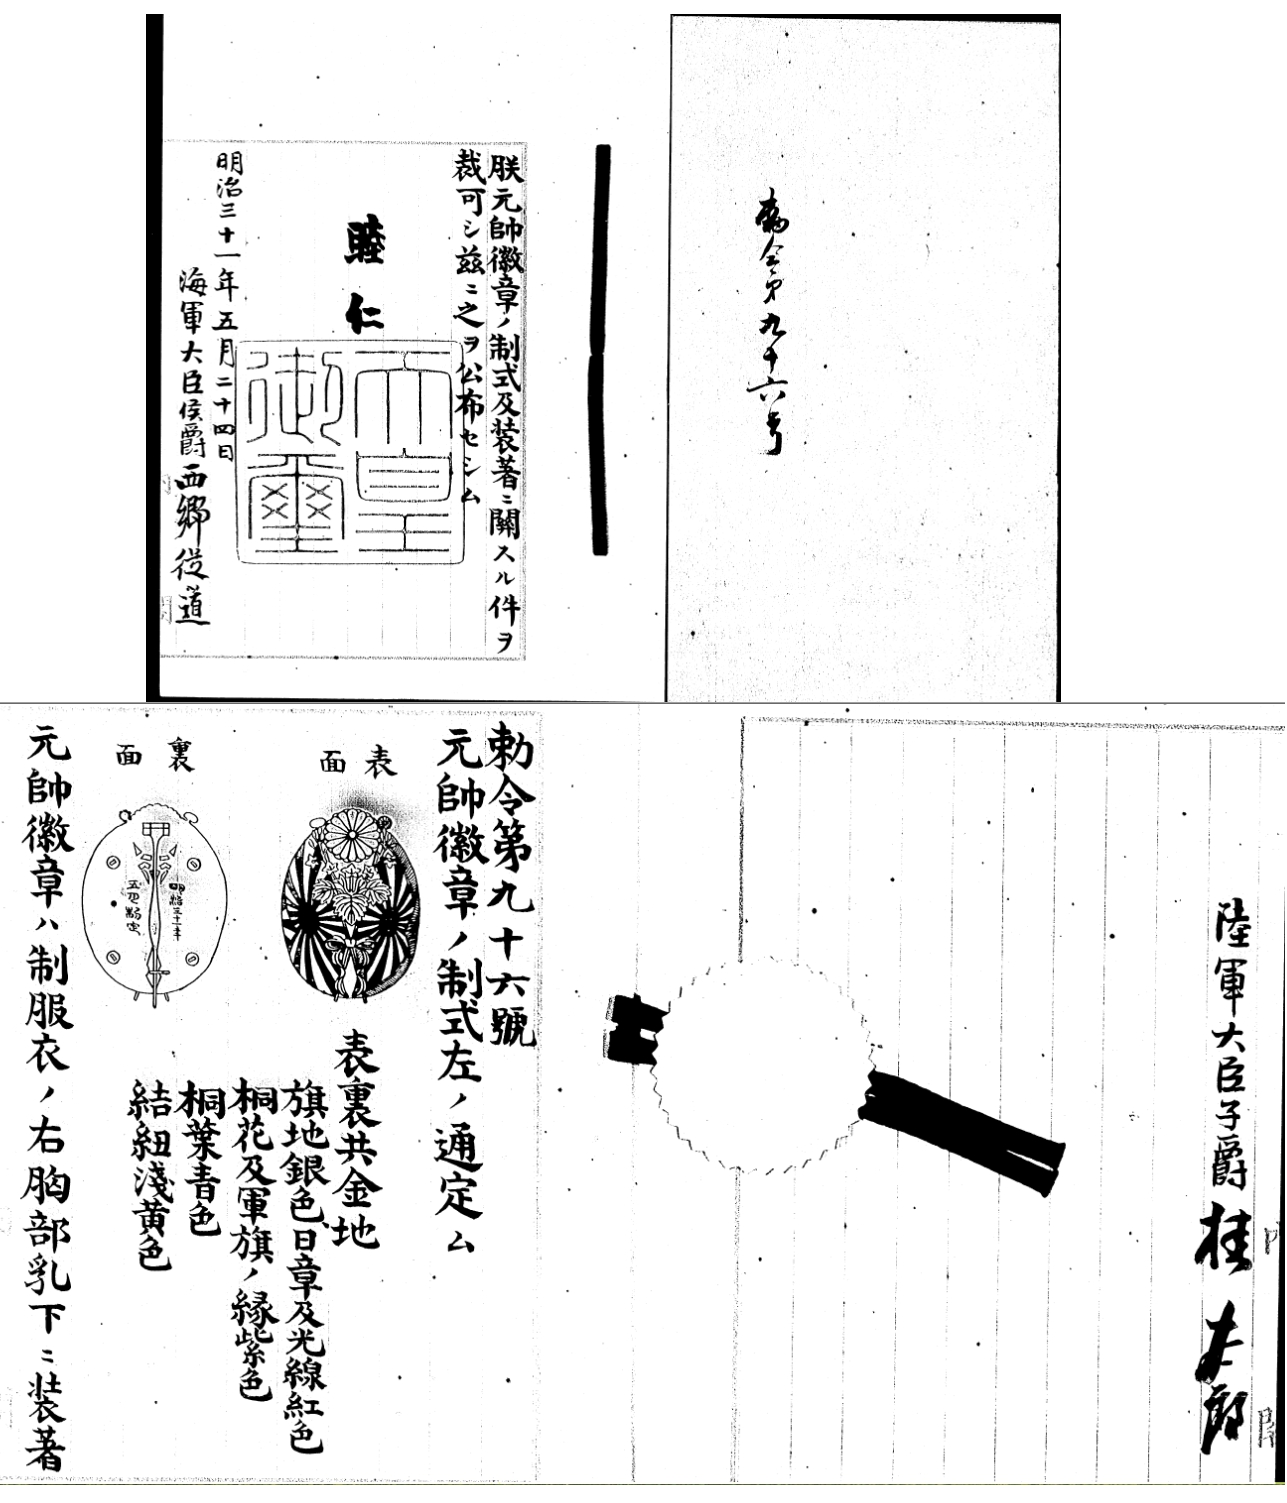 勅令第九十六号
朕元帥徽章ノ制式及装著ニ關スル件ヲ
裁可シ茲ニ之ヲ公布セシム
睦仁
天皇
御璽
明治三十一年五月二十四日
海軍大臣侯爵西郷従道
陸軍大臣子爵桂太郎
勅令第九十六號
元帥徽章ノ制式左ノ通定ム
表面
表裏共金地
旗地銀色日章及光線紅色
桐花及軍旗ノ縁紫色
桐葉青色
結紐淺黄色
裏面
明治三十一年
五月制定
元帥徽章ハ制服衣ノ右胸部乳下ニ装著